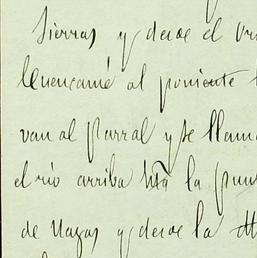 Sierras y desde el
Cuencamé al poniente
van al Parral y se llama
el rio arriba hta la
de Nazas y desde la